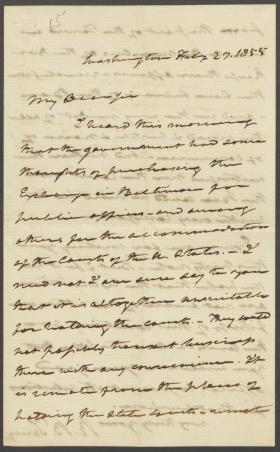 15
Washington Feby 27. 1855
My Dear Sir
I heard this morning
that the government had some
thoughts of purchasing the
Exchange in Baltimore for
public offices – and among
others for the accommodation
of the Courts of the U. States. – I
need not I am sure say to you
that it is altogether unsuitable
for holding the courts. – They could
not possibly transact business
there with any convenience. It
is remote from the places of
holding the State Courts –